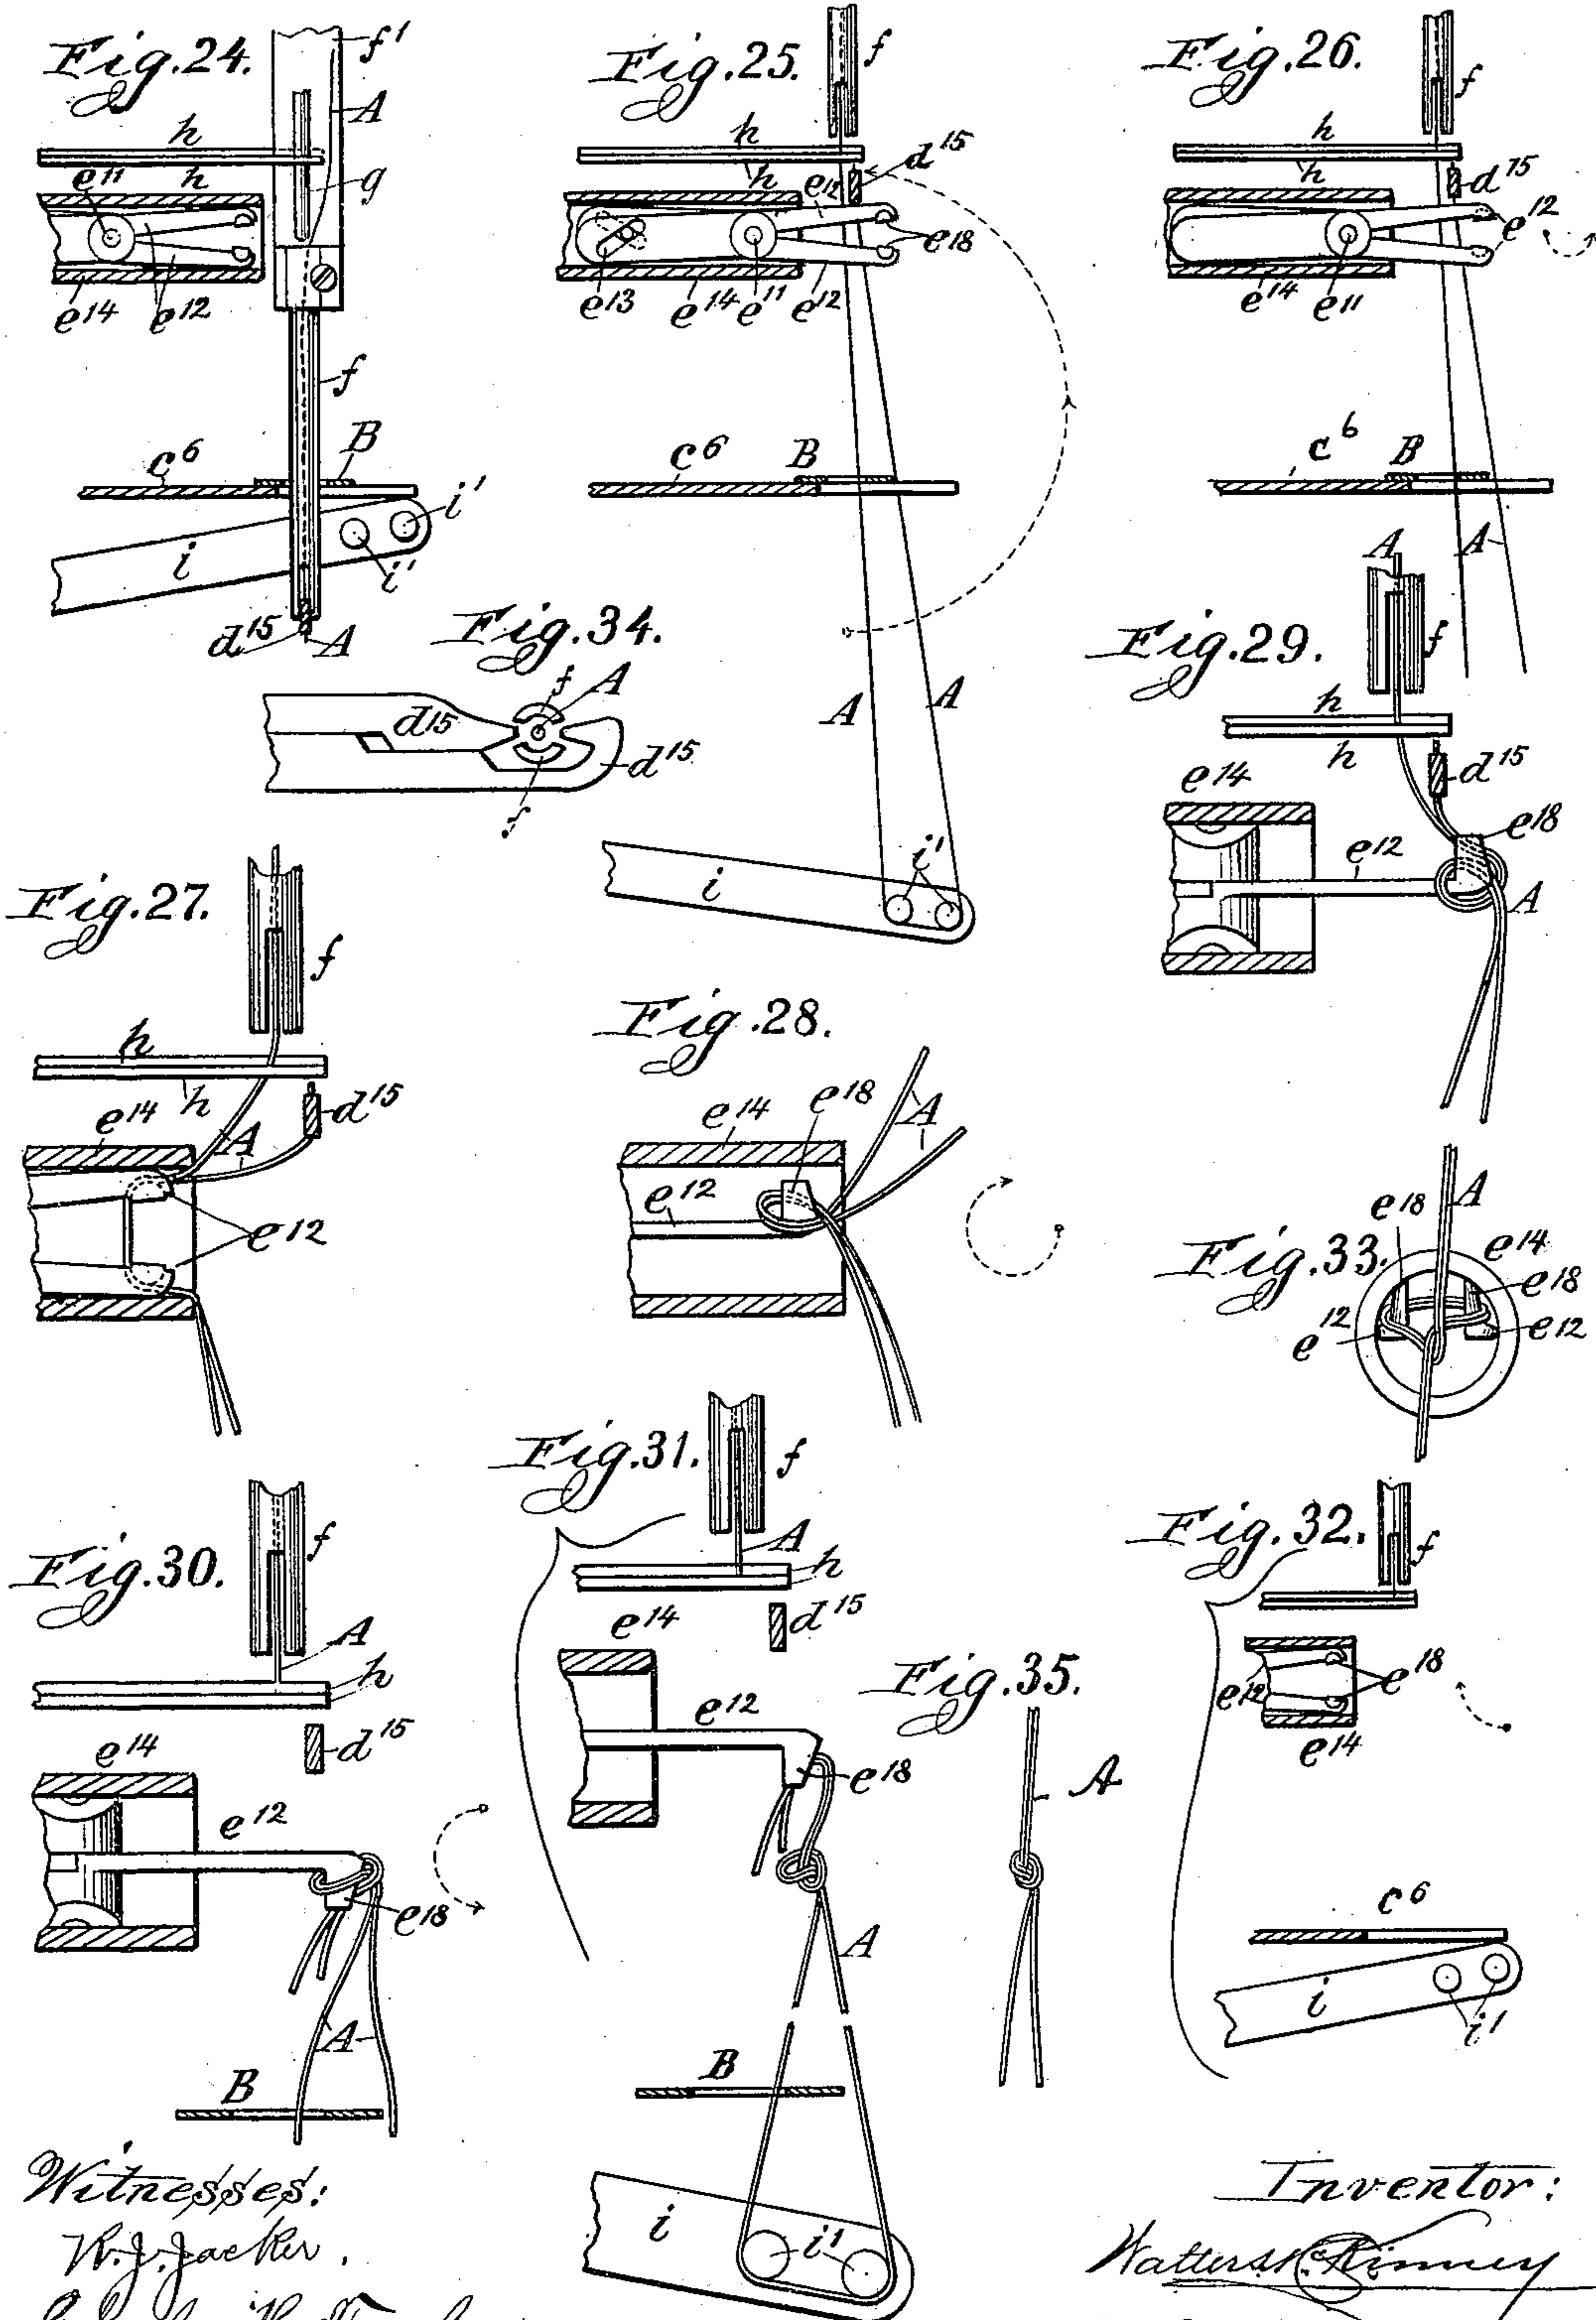 Fig. 24.
f'
A
h
h
g
e11
e14
e12
f
c6
B
i
i'
i'
d15
A
Fig. 25.
f
h
h
d15
e12
e18
e13
e14
e11
e12
c6
B
A
A
i'
i
Fig. 26.
f
h
h
d15
e12
e14
e11
c6
B
A
A
Fig. 34.
f
A
d15
d15
f
Fig. 29.
f
h
h
d15
e14
e18
e12
A
Fig. 27.
f
h
h
e14
A
d15
e12
Fig. 28.
e14
e18
A
e12
Fig. 33.
e18
A
e14
e18
e12
e12
Fig. 30.
f
A
h
d15
e14
e12
e18
A
B
Fig. 31.
f
A
h
d15
e14
e12
e18
A
B
i
i'
Fig. 35.
A
Fig. 32.
f
e12
e18
e14
c6
i
i'
Witnesses:
Inventor: